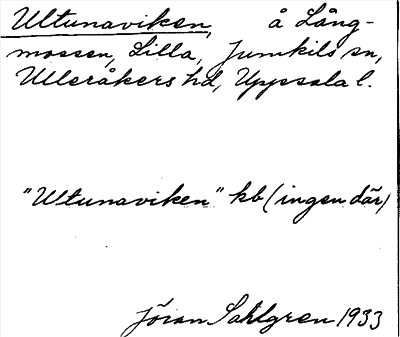 Ultunaviken, å Lång-
mossen, Lilla, Jumkils sn,
Ulleråkers hd, Uppsala l.
"Ultunaviken" kb (ingen där)
Jöran Sahlgren 1933